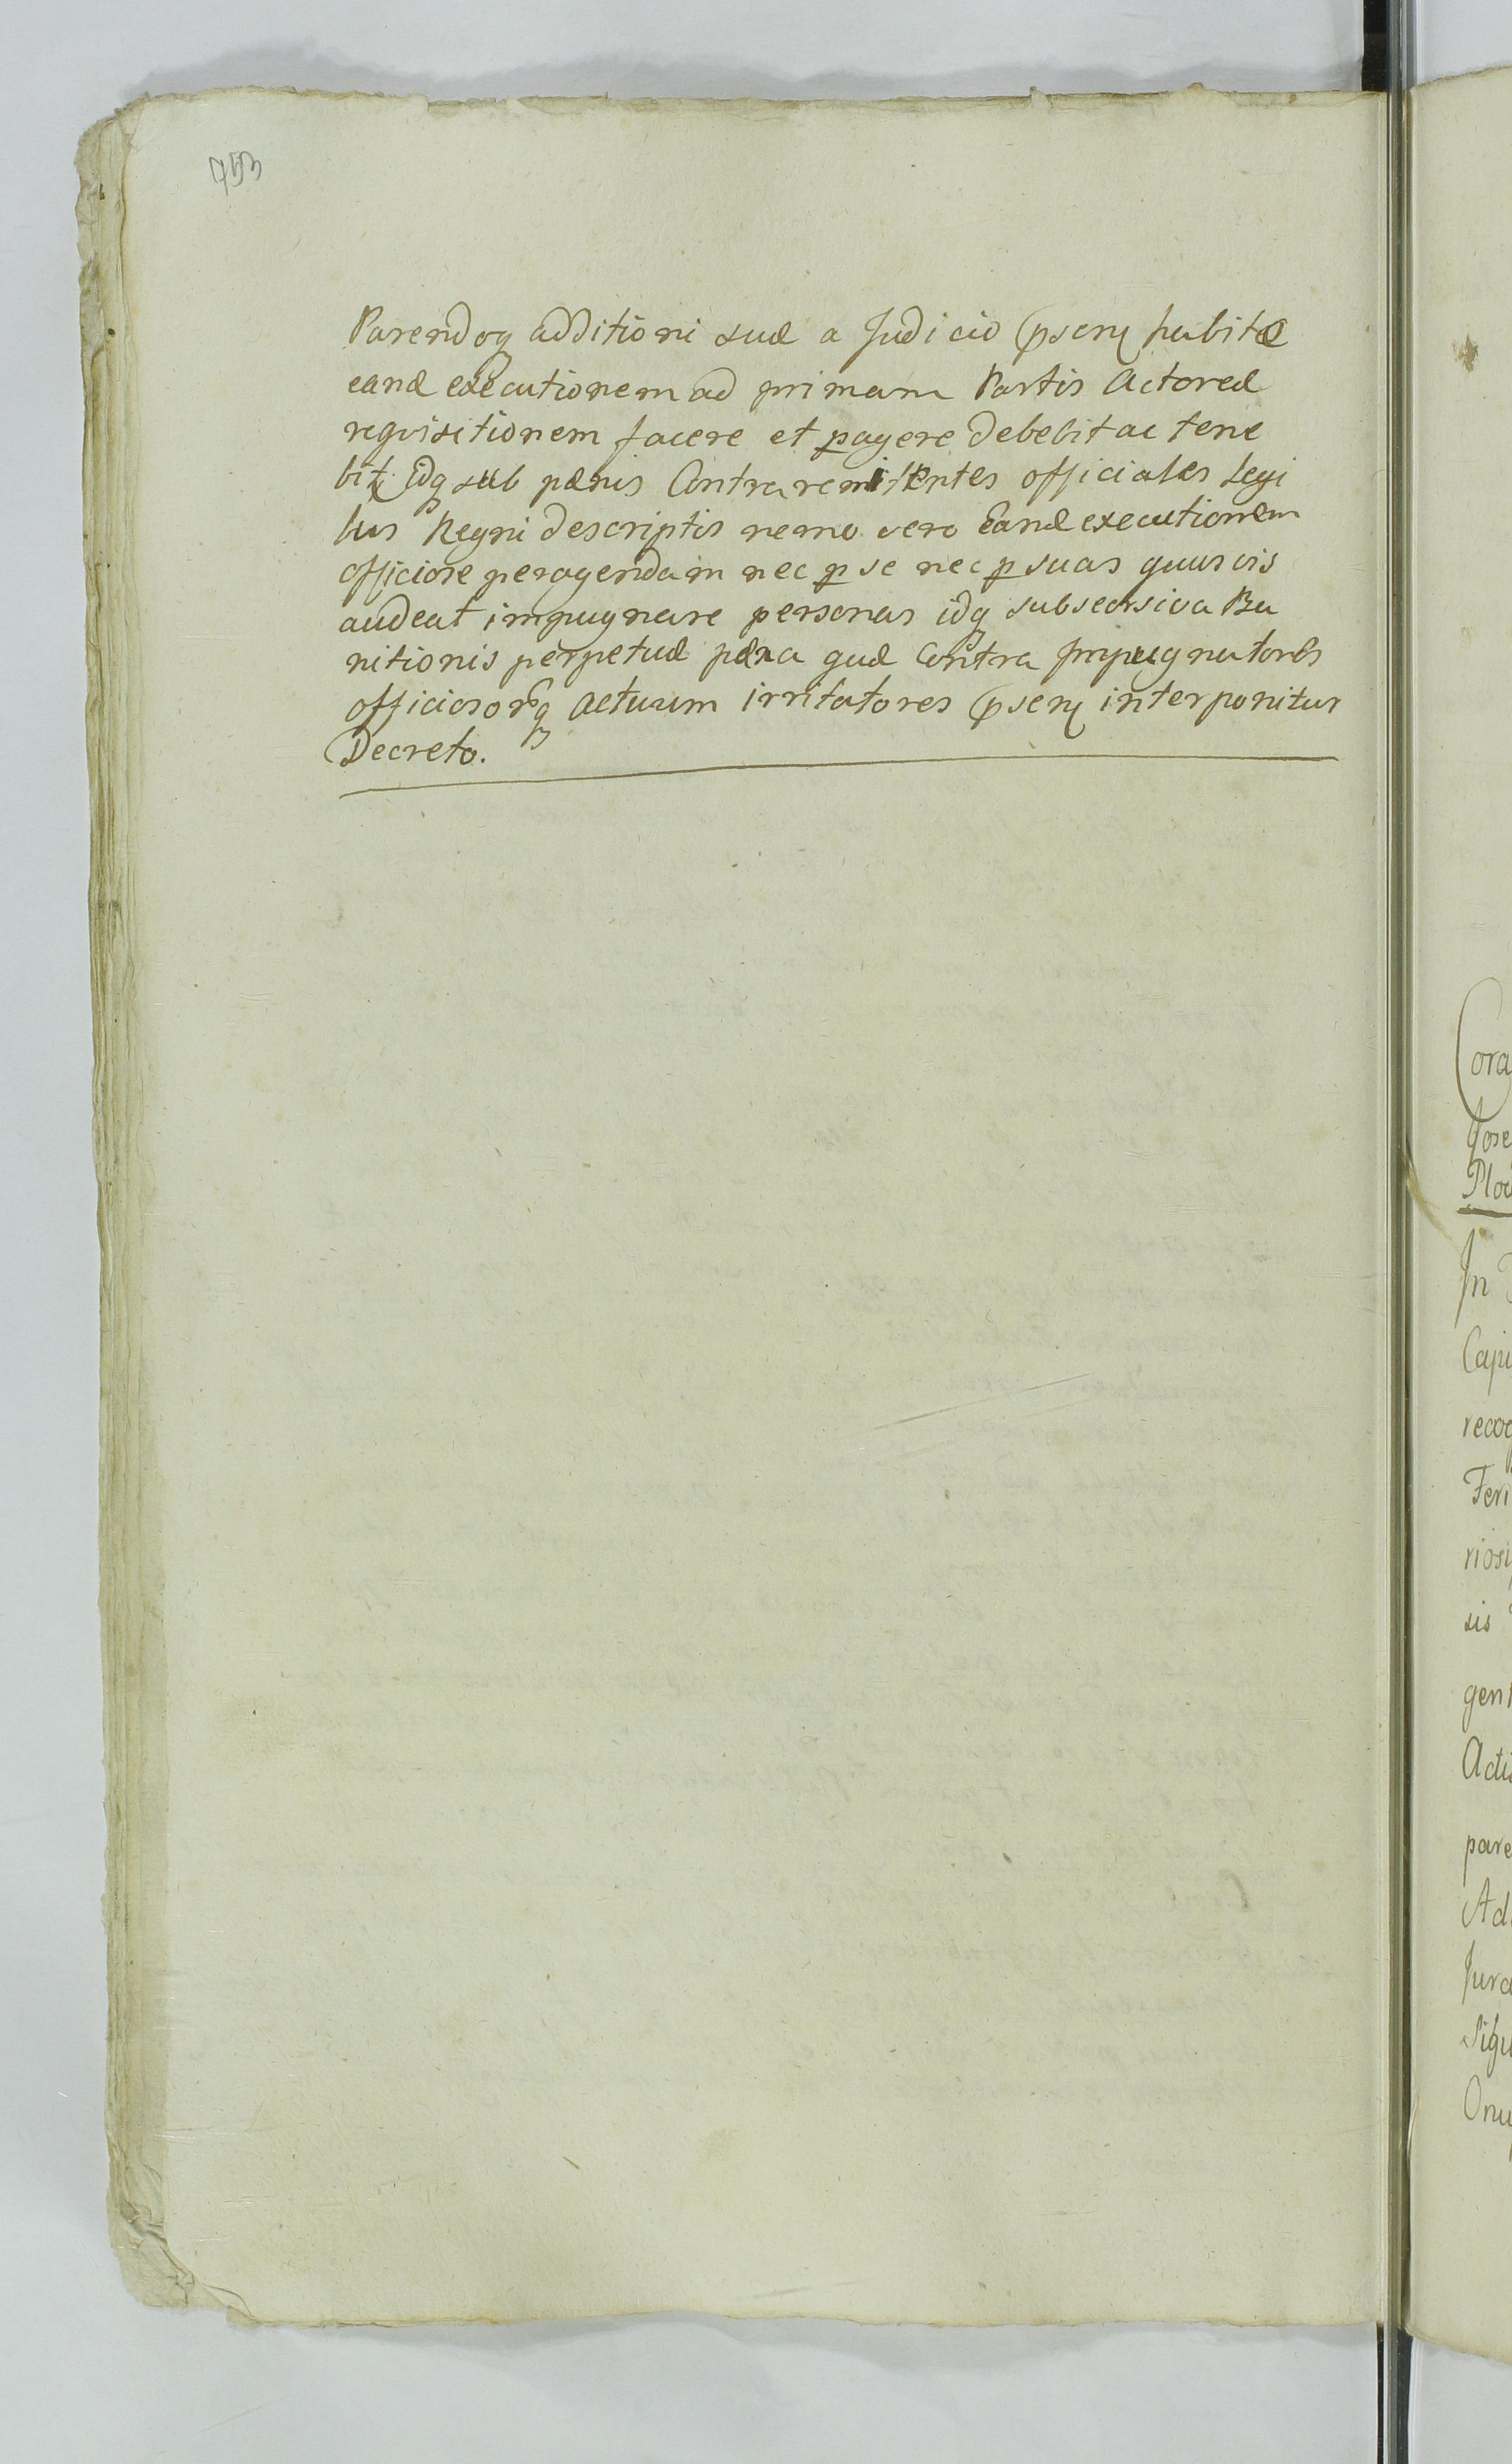 953
Parendoq additioni suæ a Judicio pseny habitæ
eand executionem ad primam Partis Actoreæ
reqvisitionem facere et pagere debebit ac tene
bit, idq sub pænis Contra remittentes officiales Legi
bus Regni descriptis nemo vero Eand executionem
officiose peragendam nec p se nec p suas quusvis
audeat impugnare personas idq subsecsiva Ba
nitionis perpetuæ pæna quæ Contra Impugnatores
officiosorq Actuum irritatores pseny interponitur
Decreto.
Cora
Jose
Ploc
In
Capi
recog
Feri
rios
sis
gen
Acti
pare
Ad
Jura
Siqu
Onu